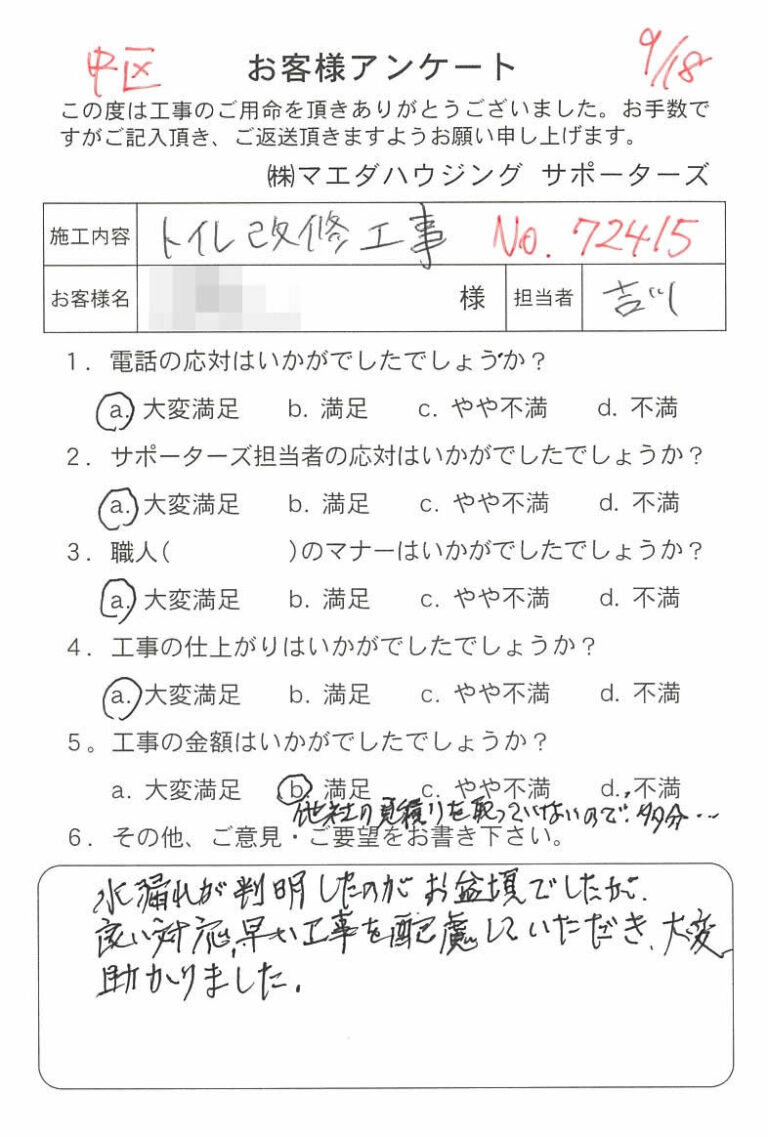 中区 お客様アンケート 9/18
この度は工事のご用命を頂きありがとうございました。お手数で
すがご記入頂き、ご返送頂きますようお願い申し上げます。
㈱マエダハウジング サポーターズ
施工内容 トイレ改修工事 No. 72415
お客様名 様 担当者 吉川
1. 電話の応対はいかがでしたでしょうか？
a. 大変満足 b. 満足 c. やや不満 d. 不満
2. サポーターズ担当者の応対はいかがでしたでしょうか？
a. 大変満足 b. 満足 c. やや不満 d. 不満
3. 職人( )のマナーはいかがでしたでしょうか？
a. 大変満足 b. 満足 c. やや不満 d. 不満
4. 工事の仕上がりはいかがでしたでしょうか？
a. 大変満足 b. 満足 c. やや不満 d. 不満
5。工事の金額はいかがでしたでしょうか？
a. 大変満足 b. 満足 c. やや不満 d. 不満
他社の見積りを取っていないので、多分…
6. その他、ご意見・ご要望をお書き下さい。
水漏れが判明したのがお盆頃でしたが、
良い対応、早い工事を配慮していただき、大変
助かりました.